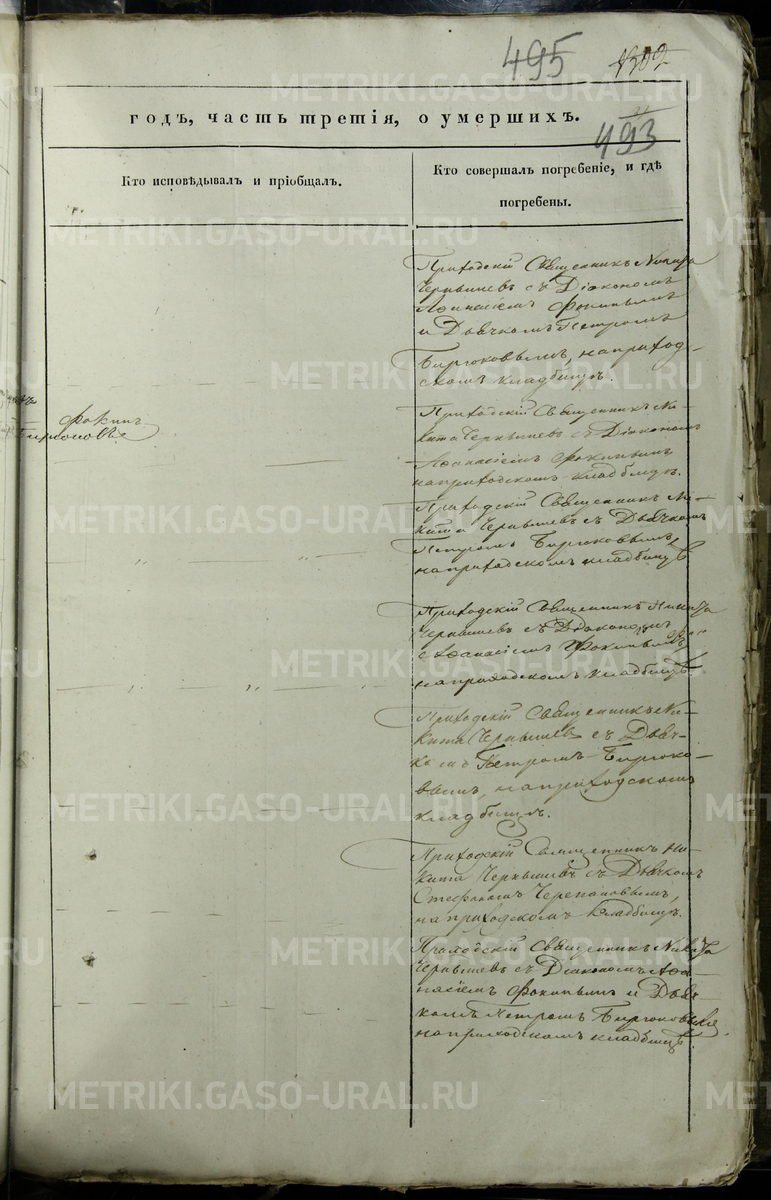 495
493
годъ, часть третія, о умершихъ.
Кто исповѣдывалъ и пріобщалъ.
Кто совершалъ погребеніе, и гдѣ
погребены.
Фокинъ
Приходскій Священникъ Никита
Чернышевъ съ Діакономъ
Аѳанасіемъ Фокинымъ
и Дьячкомъ Петромъ
Бирюковымъ, на приход-
скомъ кладбищѣ.
Приходскій Священникъ Ни-
кита Чернышевъ съ Діакономъ
Аѳанасіемъ Фокинымъ
на приходскомъ кладбищѣ.
Приходскій Священникъ Ни-
кита Чернышевъ съ Дьячкомъ
Петромъ Бирюковымъ,
на приходскомъ кладбищѣ
Приходскій Священникъ Никита
Чернышевъ съ Діакономъ
Аѳанасіемъ Фокинымъ
на приходскомъ кладбищѣ
Приходскій Священникъ Ни-
кита Чернышевъ съ Дьяч-
комъ Петромъ Бирюко-
вымъ, на приходскомъ
кладбищѣ.
Приходскій Священникъ Ни-
кита Чернышевъ съ Дьячкомъ
Стефаномъ Черепановымъ,
на приходскомъ кладбищѣ.
Приходскій Священникъ Никита
Чернышевъ съ Діакономъ Аѳа-
насіемъ Фокинымъ и Дьяч-
комъ Петромъ Бирюковымъ
на приходскомъ кладбищѣ.
METRIKI.GASO-URAL.RU